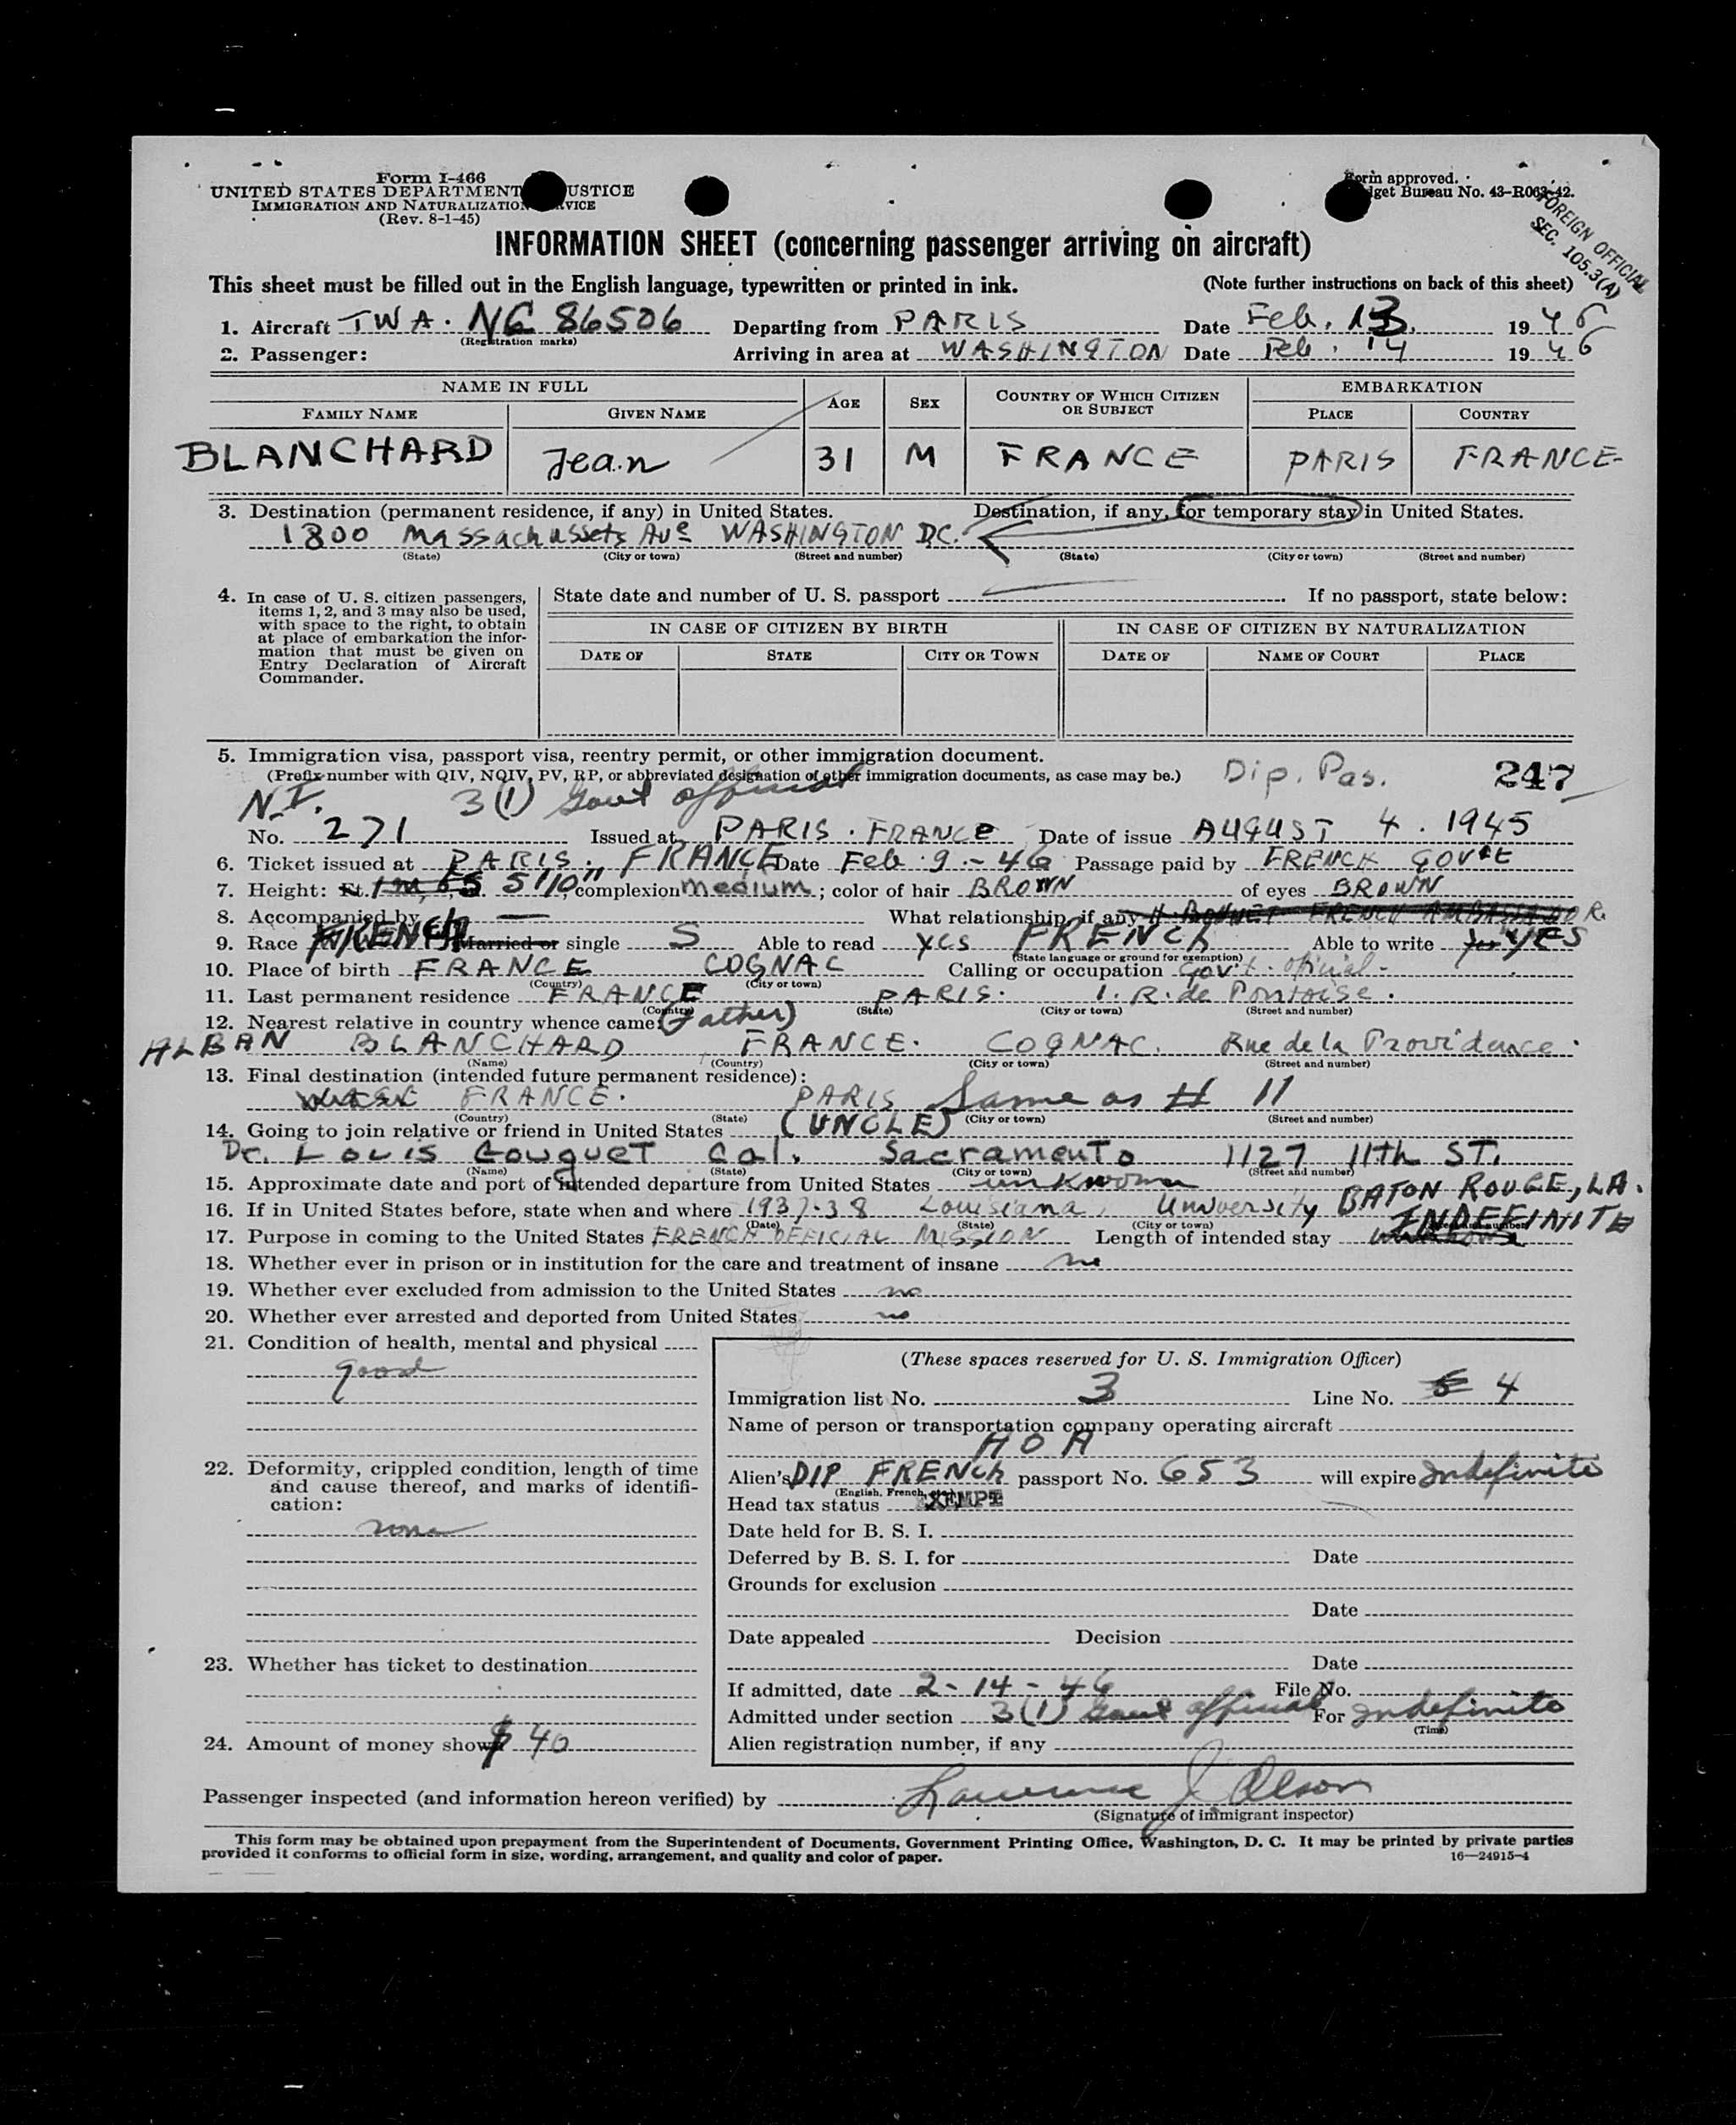 Form I-466
UNITED STATES DEPARTMENT USTICE
IMMIGRATION AND NATURALIZATION VICE
(Rev. 8-1-45)
Form approved.
dget Bureau No. 43-R063-42.
FOREIGN OFFICIAL
SEC. 105.3(A)
INFORMATION SHEET (concerning passenger arriving on aircraft)
This sheet must be filled out in the English language, typewritten or printed in ink. (Note further instructions on back of this sheet)
1. Aircraft TWA. NC 86506 Departing from PARIS Date Feb. 13. 1946
(Registration marks)
2. Passenger: Arriving in area at WASHINGTON Date Feb. 14 1946
NAME IN FULL AGE SEX COUNTRY OF WHICH CITIZEN OR SUBJECT EMBARKATION
FAMILY NAME GIVEN NAME PLACE COUNTRY
BLANCHARD Jean 31 M FRANCE PARIS FRANCE
3. Destination (permanent residence, if any) in United States. Destination, if any, for temporary stay in United States.
1800 Massachussets Ave WASHINGTON D.C.
(State) (City or town) (Street and number) (State) (City or town) (Street and number)
4. In case of U. S. citizen passengers, items 1, 2, and 3 may also be used, with space to the right, to obtain at place of embarkation the information that must be given on Entry Declaration of Aircraft Commander.
State date and number of U. S. passport If no passport, state below:
IN CASE OF CITIZEN BY BIRTH IN CASE OF CITIZEN BY NATURALIZATION
DATE OF STATE CITY OR TOWN DATE OF NAME OF COURT PLACE
5. Immigration visa, passport visa, reentry permit, or other immigration document.
(Prefix number with QIV, NQIV, PV, RP, or abbreviated designation of other immigration documents, as case may be.) Dip. Pas. 247
N.I. 3(1) Govt official
No. 271 Issued at PARIS. FRANCE Date of issue AUGUST 4. 1945
6. Ticket issued at PARIS. FRANCE Date Feb. 9 - 46 Passage paid by FRENCH GOV't
7. Height: Ft. 5'10" complexion medium; color of hair BROWN of eyes BROWN
8. Accompanied by — What relationship, if any FRENCH AMBASSADOR.
9. Race FRENCH Married or single S Able to read yes FRENCH Able to write YES
(State language or ground for exemption)
10. Place of birth FRANCE COGNAC Calling or occupation Gov't. oficial -
(Country) (City or town)
11. Last permanent residence FRANCE PARIS. 1. R. de Pontoise.
(Country) (State) (City or town) (Street and number)
12. Nearest relative in country whence came: (Father)
ALBAN BLANCHARD FRANCE. COGNAC. Rue de la Providence.
(Name) (Country) (City or town) (Street and number)
13. Final destination (intended future permanent residence):
FRANCE. PARIS Same as # 11
(Country) (State) (City or town) (Street and number)
14. Going to join relative or friend in United States (UNCLE)
Dr. Louis Gouguet Cal. Sacramento 1127 11th ST.
(Name) (State) (City or town) (Street and number)
15. Approximate date and port of intended departure from United States unknown
16. If in United States before, state when and where 1937-38 Louisiana University BATON ROUGE, LA.
(Date) (State) (City or town)
17. Purpose in coming to the United States FRENCH OFFICIAL MISSION Length of intended stay INDEFINITE
18. Whether ever in prison or in institution for the care and treatment of insane no
19. Whether ever excluded from admission to the United States no
20. Whether ever arrested and deported from United States no
21. Condition of health, mental and physical
good
22. Deformity, crippled condition, length of time and cause thereof, and marks of identification:
none
23. Whether has ticket to destination
24. Amount of money shown $40
(These spaces reserved for U. S. Immigration Officer)
Immigration list No. 3 Line No. 5 4
Name of person or transportation company operating aircraft
AOA
Alien's DIP FRENCH passport No. 653 will expire Indefinite
(English, French,
Head tax status EXEMPT
Date held for B. S. I.
Deferred by B. S. I. for Date
Grounds for exclusion
Date
Date appealed Decision
Date
If admitted, date 2-14-46 File No.
Admitted under section 3(1) Govt official For Indefinite
(Time)
Alien registration number, if any
Passenger inspected (and information hereon verified) by Lawrence J. Olson
(Signature of immigrant inspector)
This form may be obtained upon prepayment from the Superintendent of Documents, Government Printing Office, Washington, D. C. It may be printed by private parties
provided it conforms to official form in size, wording, arrangement, and quality and color of paper. 16—24915-4